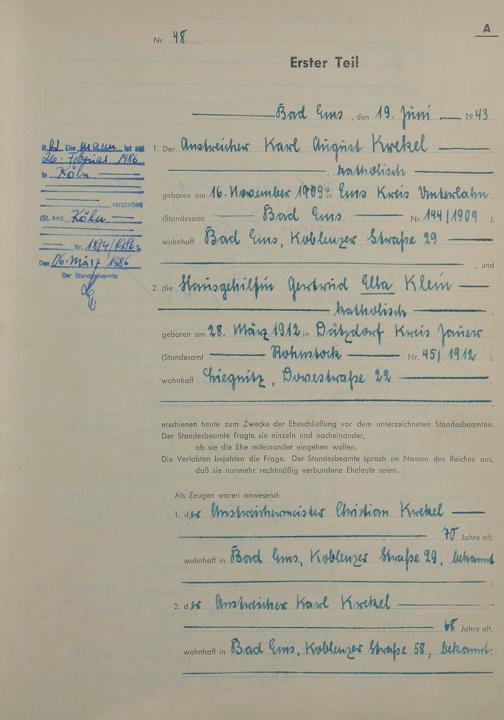 A
Nr. 48
Erster Teil
Bad Ems, den 19. Juni 1943
1. Der Anstreicher Karl August Krekel
katholisch
geboren am 16. November 1909 in Ems Kreis Unterlahn
(Standesamt Bad Ems Nr. 144/1909 ),
wohnhaft Bad Ems, Koblenzer Straße 29
, und
2. die Hausgehilfin Gertrud Ella Klein
katholisch
geboren am 28. März 1912 in Dätzdorf Kreis Jauer
(Standesamt Rohnstock Nr. 45/1912 ),
wohnhaft Liegnitz, Dovestraße 22
erschienen heute zum Zwecke der Eheschließung vor dem unterzeichneten Standesbeamten.
Der Standesbeamte fragte sie einzeln und nacheinander,
ob sie die Ehe miteinander eingehen wollen.
Die Verlobten bejahten die Frage. Der Standesbeamte sprach im Namen des Reiches aus,
daß sie nunmehr rechtmäßig verbundene Eheleute seien.
Als Zeugen waren anwesend:
1. der Anstreichermeister Christian Krekel
70 Jahre alt,
wohnhaft in Bad Ems, Koblenzer Straße 29, bekannt
;
2. der Anstreicher Karl Krekel
68 Jahre alt,
wohnhaft in Bad Ems, Koblenzer Straße 58, bekannt.
Ehemann ist am
26. Februar 1986
in Köln
verstorben
(St. Amt Köln
Nr. 1874/1986 ).
Den 06. März 1986
Der Standesbeamte